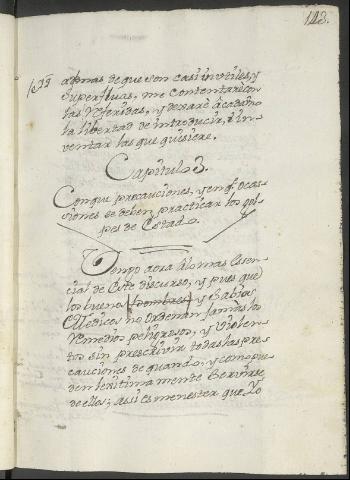 143.
ademas de que son casi inutiles, y
superfluas, me contentarè con
las referidas, y dexarè a cada uno
la libertad de introducir, è in-
ventar las que quisiere.
Capitulo 3.
Con que precauciones, y en q.e ocas-
siones se deben practicar los gol-
pes de Estado.
Tengo aora a lo mas Esen-
cial de Este discurso, y pues que
los buenos hombres y Sabios
Medicos no Ordenan jamas los
remedios peligrosos, y violen-
tos sin prescrivir todas las pre-
cauciones de quando, y como pue-
den lexitimamente servirse
de ellos; assi es menester que Yo